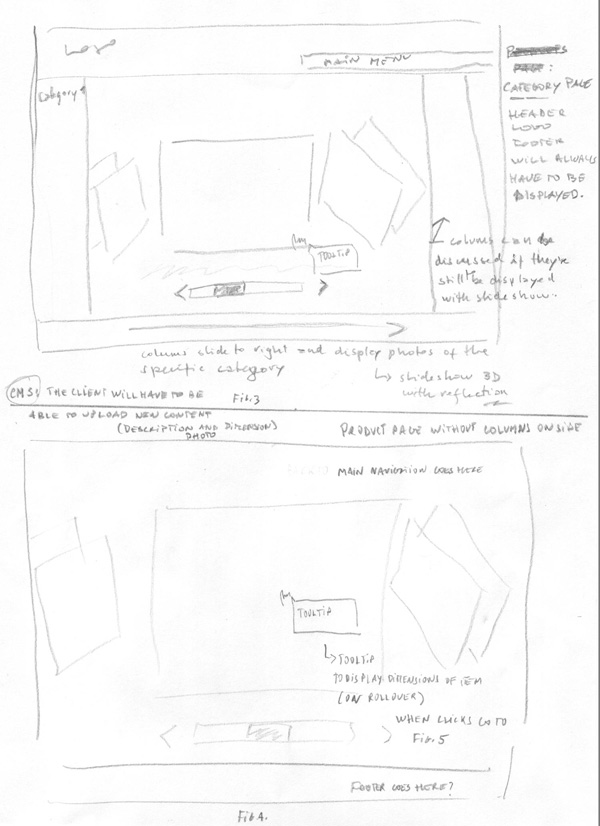 Logo
MAIN MENU
Category
PAGE:
CATEGORY PAGE
HEADER
LOGO
FOOTER
WILL ALWAYS
HAVE TO BE
DISPLAYED.
TOOLTIP
columns can be
discussed if they're
still be displayed
with slideshow.
columns slide to right and display photos of the
specific category
slideshow 3D
with reflection
CMS: THE CLIENT WILL HAVE TO BE
Fig.3
ABLE TO UPLOAD NEW CONTENT
(DESCRIPTION AND DIMENSION)
PHOTO
PRODUCT PAGE WITHOUT COLUMNS ON SIDE
MAIN NAVIGATION GOES HERE
TOOLTIP
TOOLTIP
TO DISPLAY DIMENSIONS OF ITEM
(ON ROLLOVER)
WHEN CLICKS GO TO
Fig.5
FOOTER GOES HERE?
Fig4.